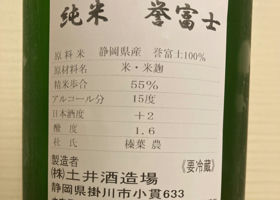 純米 誉富士
原料米 静岡県産 誉富士100%
原材料名 米・米麹
精米歩合 55%
アルコール分 15度
日本酒度 +2
酸度 1.6
杜氏 榛葉 農
製造者 《要冷蔵》
㈱土井酒造場
静岡県掛川市小貫633